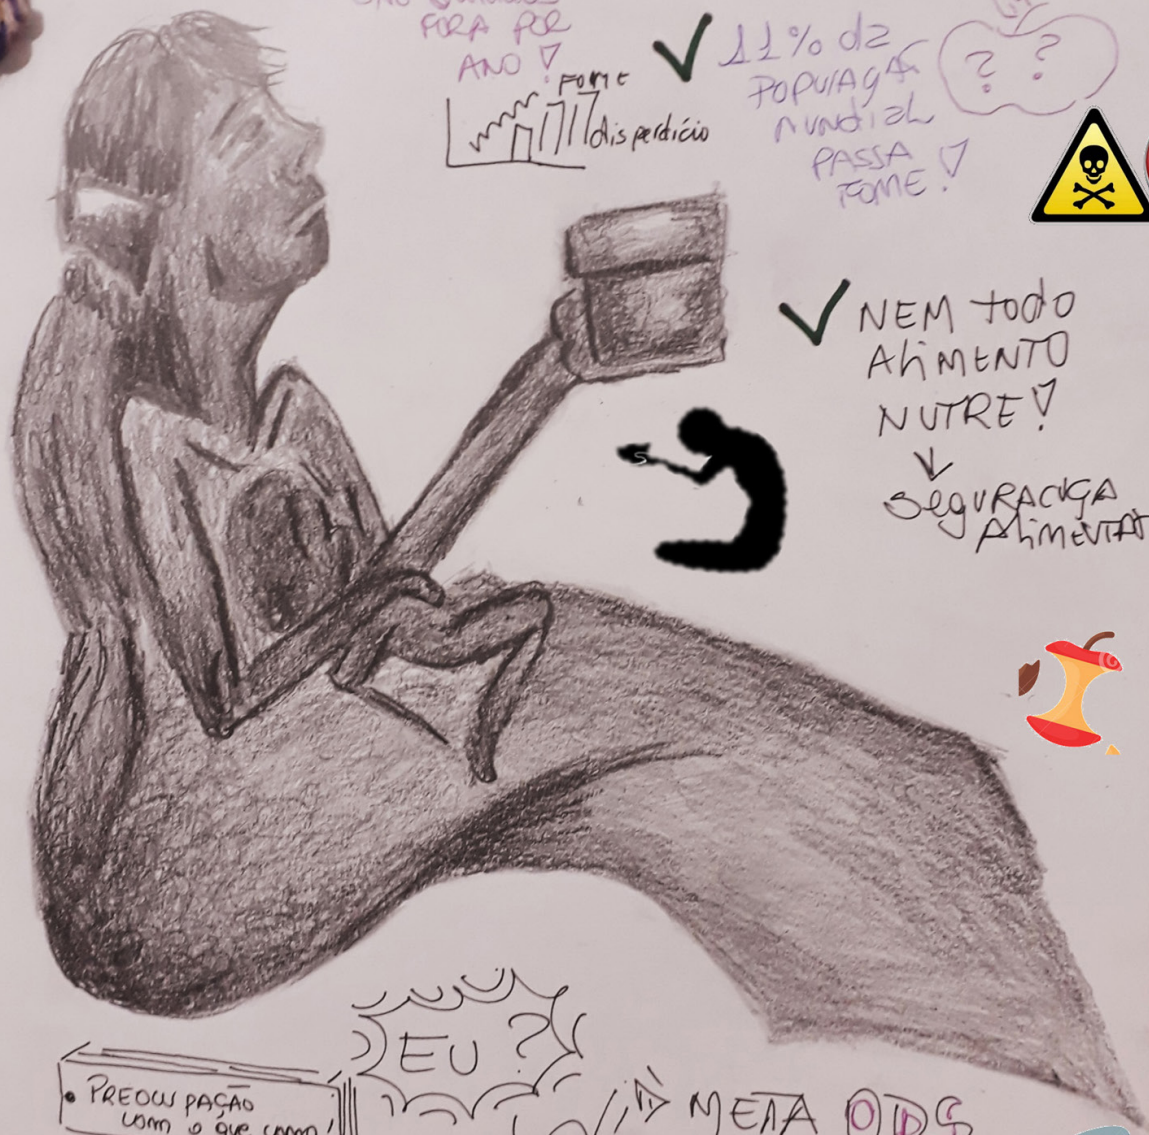 FORA POR
ANO!
FOME
disperdício
11% da
POPULAÇÃ
MUNDIAL
PASSA
FOME!
? ?
NEM todo
AliMENTO
NUTRE!
AliMENTA
EU ?
• PREOCUPAÇÃO
com o que como!
META ODS